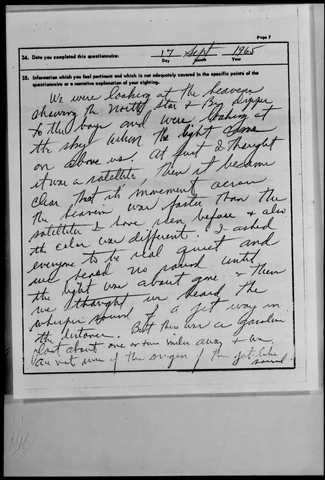 Page 7
34. Date you completed this questionnaire: 17 Sept 1965
Day Month Year
35. Information which you feel pertinent and which is not adequately covered in the specific points of the
questionnaire or a narrative explanation of your sighting.
We were looking at the heavens
showing the North Star & Big Dipper
to the boys and were looking at
the sky when the light came
on above us. At first I thought
it was a satellite, then it became
clear that its movement across
the heaven was faster than the
satellites I have seen before & also
the color was different. I asked
everyone to be real quiet and
we heard no sound until
the light was about gone & then
we thought we heard the
whisper sound of a jet way in
the distance. But there was a gasoline
plant about one or two miles away & we
are not sure of the origin of the jet like
sound.